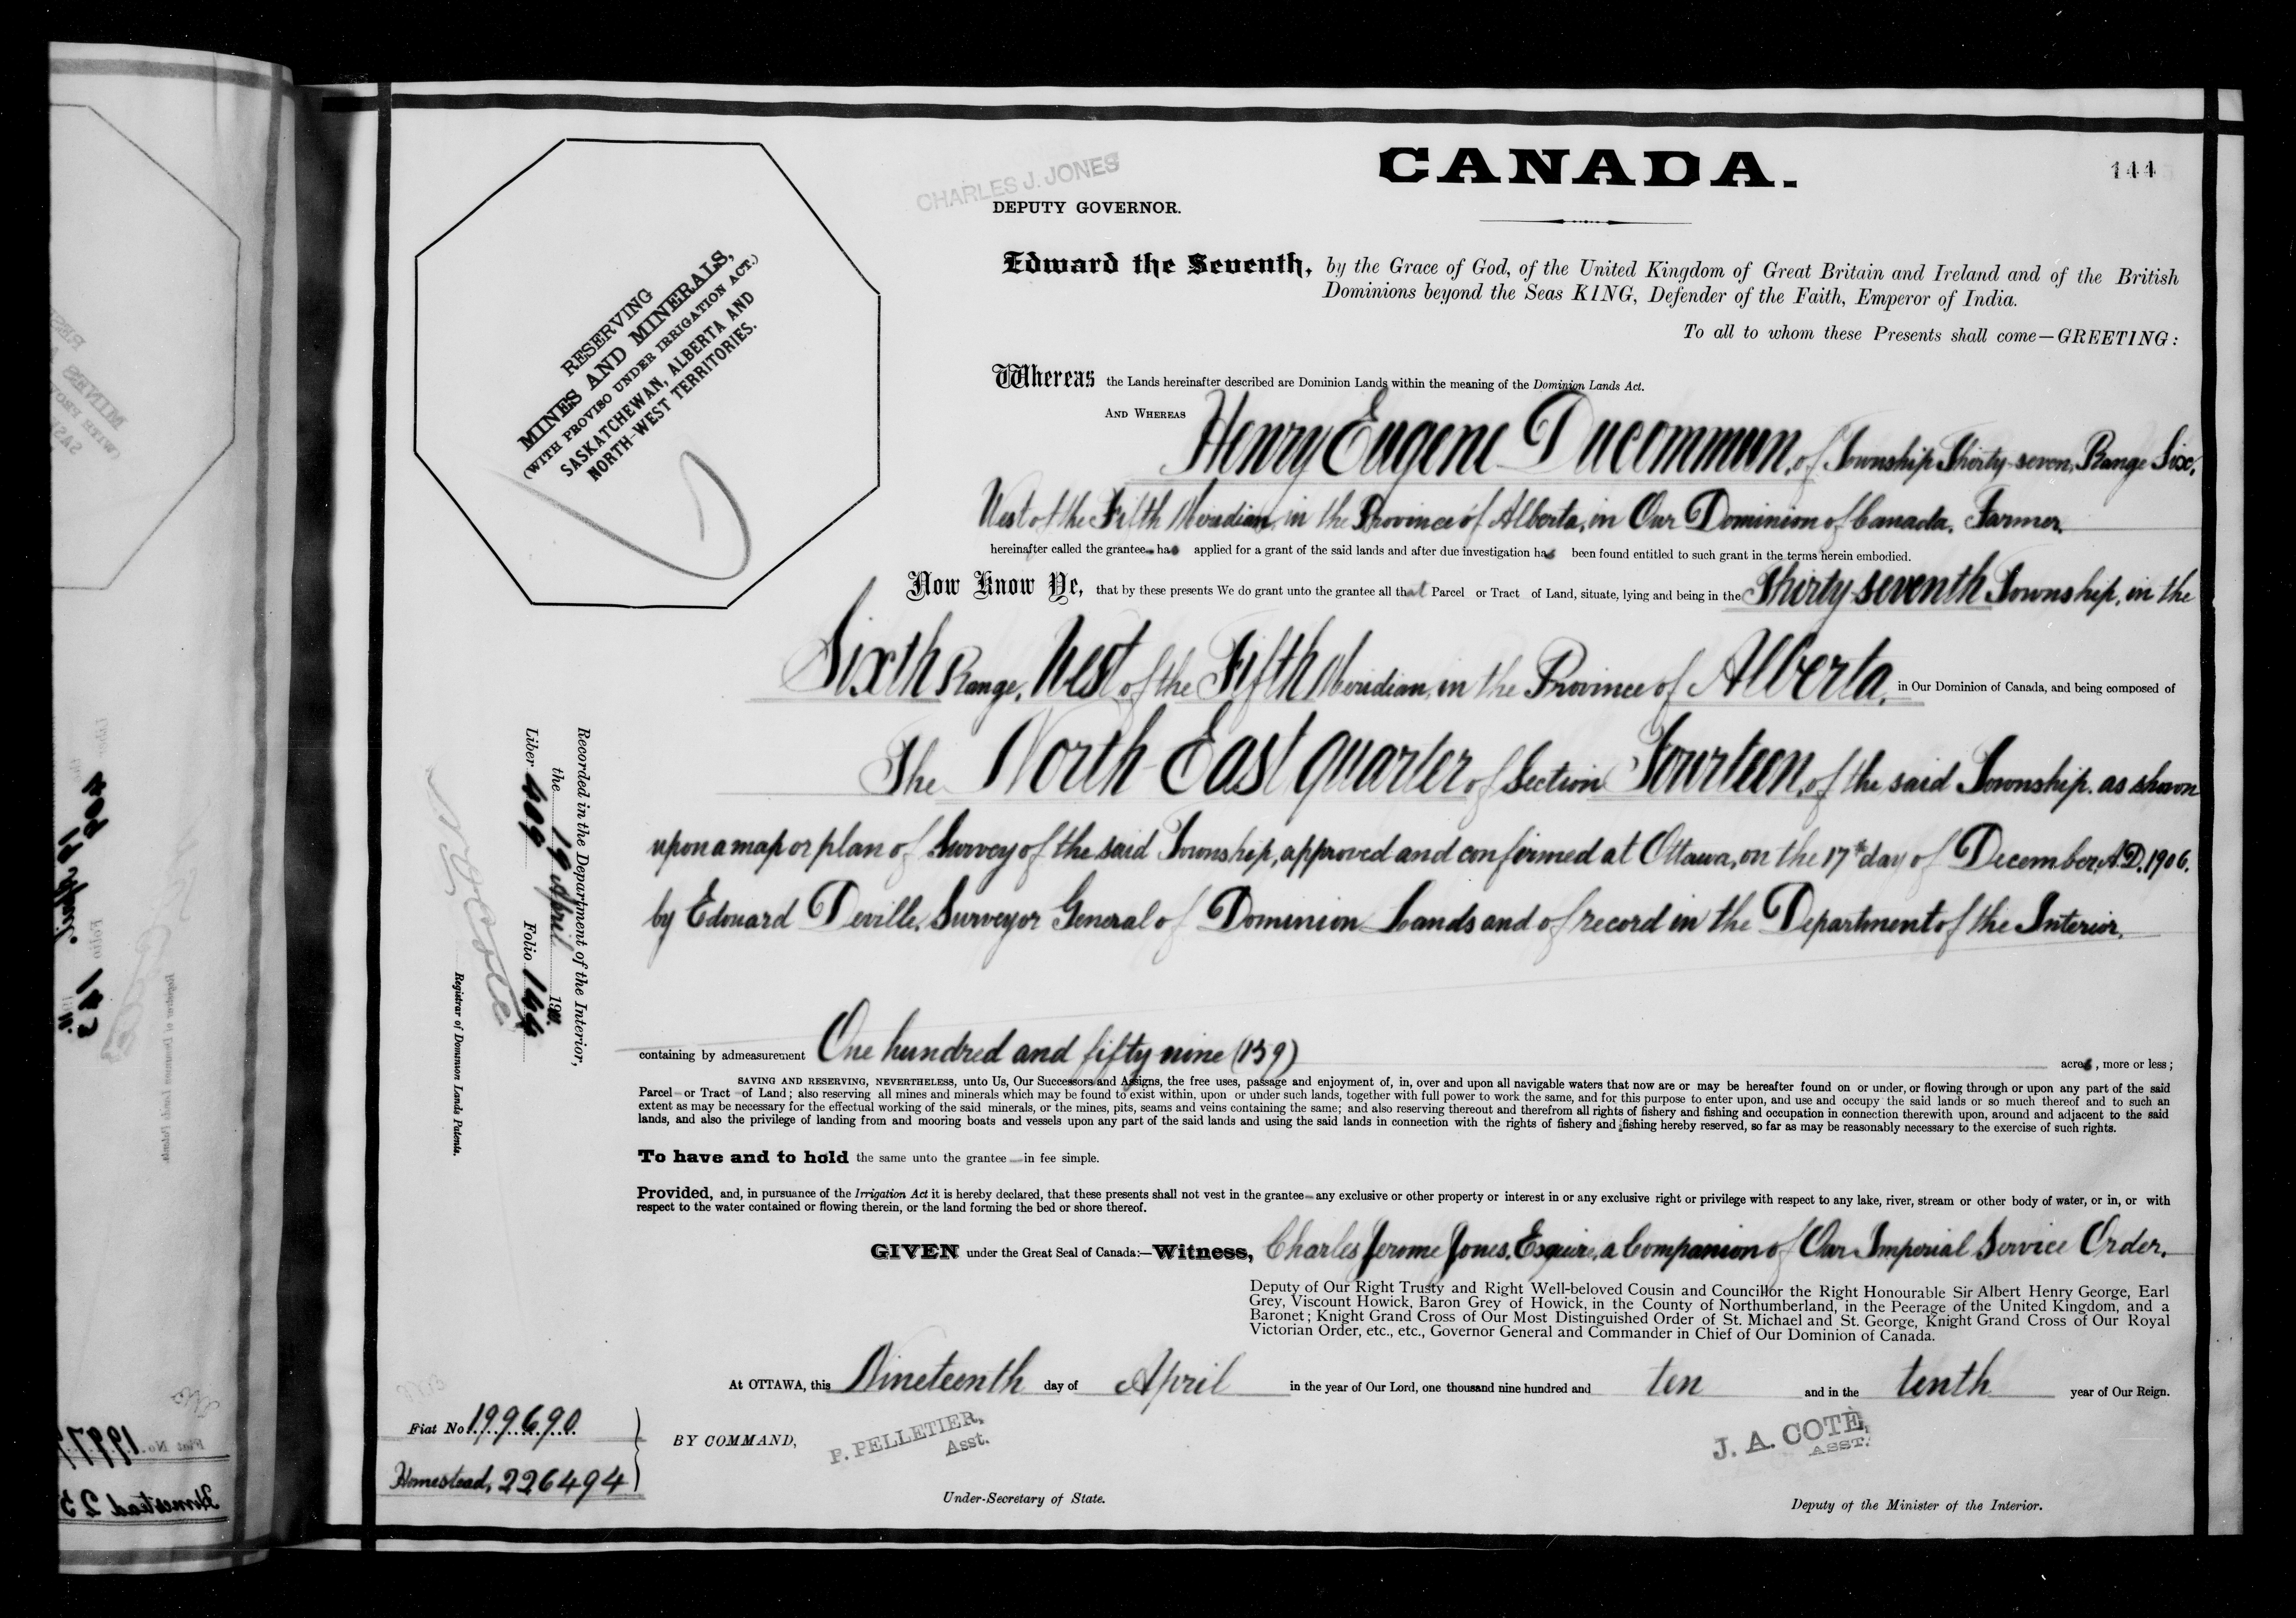 CANADA.
144
CHARLES J. JONES
DEPUTY GOVERNOR.
RESERVING
MINES AND MINERALS,
(WITH PROVISO UNDER IRRIGATION ACT.)
SASKATCHEWAN, ALBERTA AND
NORTH-WEST TERRITORIES.
Edward the Seventh, by the Grace of God, of the United Kingdom of Great Britain and Ireland and of the British
Dominions beyond the Seas KING, Defender of the Faith, Emperor of India.
To all to whom these Presents shall come—GREETING:
Whereas the Lands hereinafter described are Dominion Lands within the meaning of the Dominion Lands Act.
AND WHEREAS Henry Eugene Ducommun, of Township Thirty-seven, Range Six,
West of the Fifth Meridian, in the Province of Alberta, in Our Dominion of Canada, Farmer,
hereinafter called the grantee has applied for a grant of the said lands and after due investigation has been found entitled to such grant in the terms herein embodied.
Now Know Ye, that by these presents We do grant unto the grantee all that Parcel or Tract of Land, situate, lying and being in the Thirty-seventh Township, in the
Sixth Range, West of the Fifth Meridian, in the Province of Alberta, in Our Dominion of Canada, and being composed of
The North East quarter of Section Fourteen, of the said Township, as shown
upon a map or plan of Survey of the said Township, approved and confirmed at Ottawa, on the 17th day of December, A.D. 1906.
by Edouard Deville, Surveyor General of Dominion Lands and of record in the Department of the Interior,
Recorded in the Department of the Interior,
the 19 April 19
Liber 409 Folio 144
N O Coté
Registrar of Dominion Lands Patents.
containing by admeasurement One hundred and fifty nine (159) acres, more or less;
SAVING AND RESERVING, NEVERTHELESS, unto Us, Our Successors and Assigns, the free uses, passage and enjoyment of, in, over and upon all navigable waters that now are or may be hereafter found on or under, or flowing through or upon any part of the said
Parcel or Tract of Land; also reserving all mines and minerals which may be found to exist within, upon or under such lands, together with full power to work the same, and for this purpose to enter upon, and use and occupy the said lands or so much thereof and to such an
extent as may be necessary for the effectual working of the said minerals, or the mines, pits, seams and veins containing the same; and also reserving thereout and therefrom all rights of fishery and fishing and occupation in connection therewith upon, around and adjacent to the said
lands, and also the privilege of landing from and mooring boats and vessels upon any part of the said lands and using the said lands in connection with the rights of fishery and fishing hereby reserved, so far as may be reasonably necessary to the exercise of such rights.
To have and to hold the same unto the grantee in fee simple.
Provided, and, in pursuance of the Irrigation Act it is hereby declared, that these presents shall not vest in the grantee any exclusive or other property or interest in or any exclusive right or privilege with respect to any lake, river, stream or other body of water, or in, or with
respect to the water contained or flowing therein, or the land forming the bed or shore thereof.
GIVEN under the Great Seal of Canada:—Witness, Charles Jerome Jones, Esquire, a Companion of Our Imperial Service Order,
Deputy of Our Right Trusty and Right Well-beloved Cousin and Councillor the Right Honourable Sir Albert Henry George, Earl
Grey, Viscount Howick, Baron Grey of Howick, in the County of Northumberland, in the Peerage of the United Kingdom, and a
Baronet; Knight Grand Cross of Our Most Distinguished Order of St. Michael and St. George, Knight Grand Cross of Our Royal
Victorian Order, etc., etc., Governor General and Commander in Chief of Our Dominion of Canada.
At OTTAWA, this Nineteenth day of April in the year of Our Lord, one thousand nine hundred and ten and in the tenth year of Our Reign.
Fiat No 199690
Homestead, 226494
BY COMMAND,
P. PELLETIER,
Asst.
J. A. COTÉ,
ASST.
Under-Secretary of State.
Deputy of the Minister of the Interior.